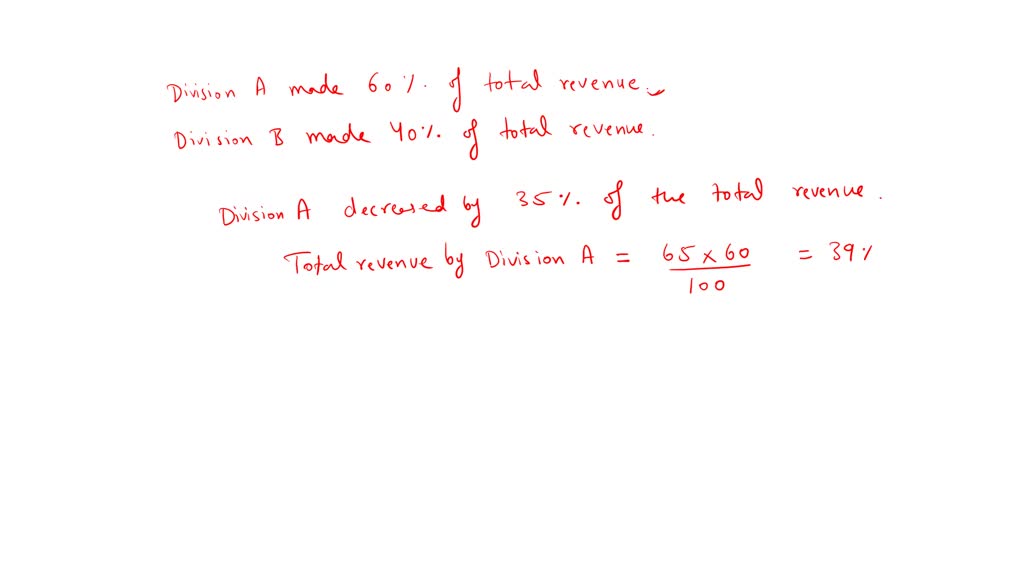 Division A made 60%. of total revenue.
Division B made 40%. of total revenue.
Division A decreased by 35%. of the total revenue.
Total revenue by Division A = 65 x 60 / 100 = 39%